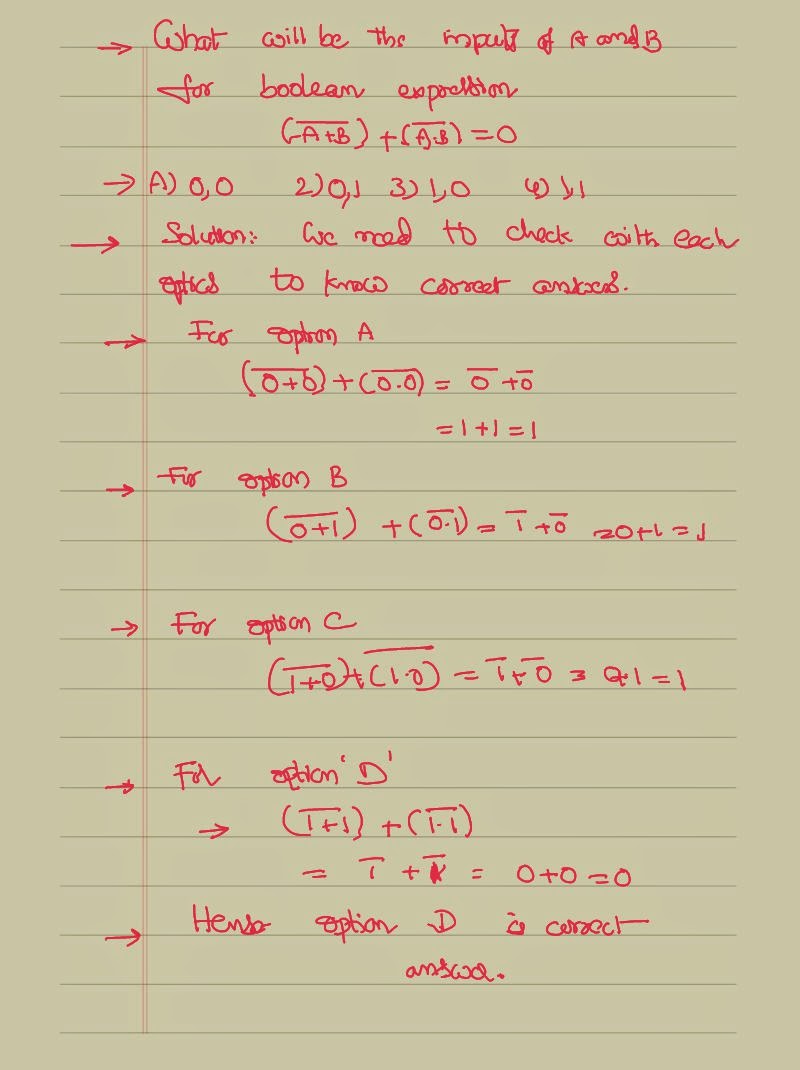 → What will be the inputs of A and B
for boolean expression
(\overline{A+B}) + (\overline{A \cdot B}) = 0
→ A) 0,0 2) 0,1 3) 1,0 4) 1,1
→ Solution: We need to check with each
to know correct answer.
→ For option A
(\overline{0+0}) + (\overline{0 \cdot 0}) = \overline{0} + \overline{0}
= 1 + 1 = 1
→ For option B
(\overline{0+1}) + (\overline{0 \cdot 1}) = \overline{1} + \overline{0} = 0+1 = 1
→ For option C
(\overline{1+0}) + \overline{(1 \cdot 0)} = \overline{1} + \overline{0} = 0+1 = 1
→ For option 'D'
→ (\overline{1+1}) + (\overline{1 \cdot 1})
= \overline{1} + \overline{1} = 0+0 = 0
→ Hense option D is correct
answer.